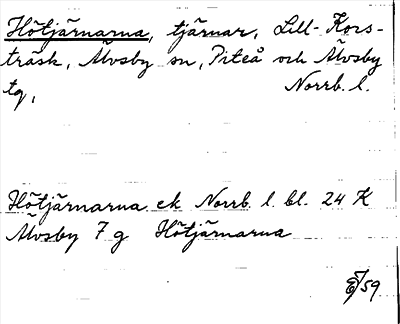 Hötjärnarna, tjärnar, Lill-Kors-
träsk, Älvsby sn, Piteå och Älvsby
tg, Norrb. l.
Hötjärnarna ek Norrb. l. bl. 24 K
Älvsby 7 g Hötjärnarna
/59